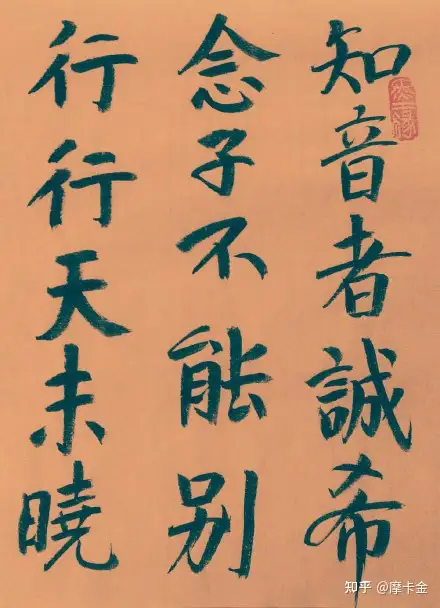 知音者誠希
念子不能别
行行天未曉
知乎 @摩卡金